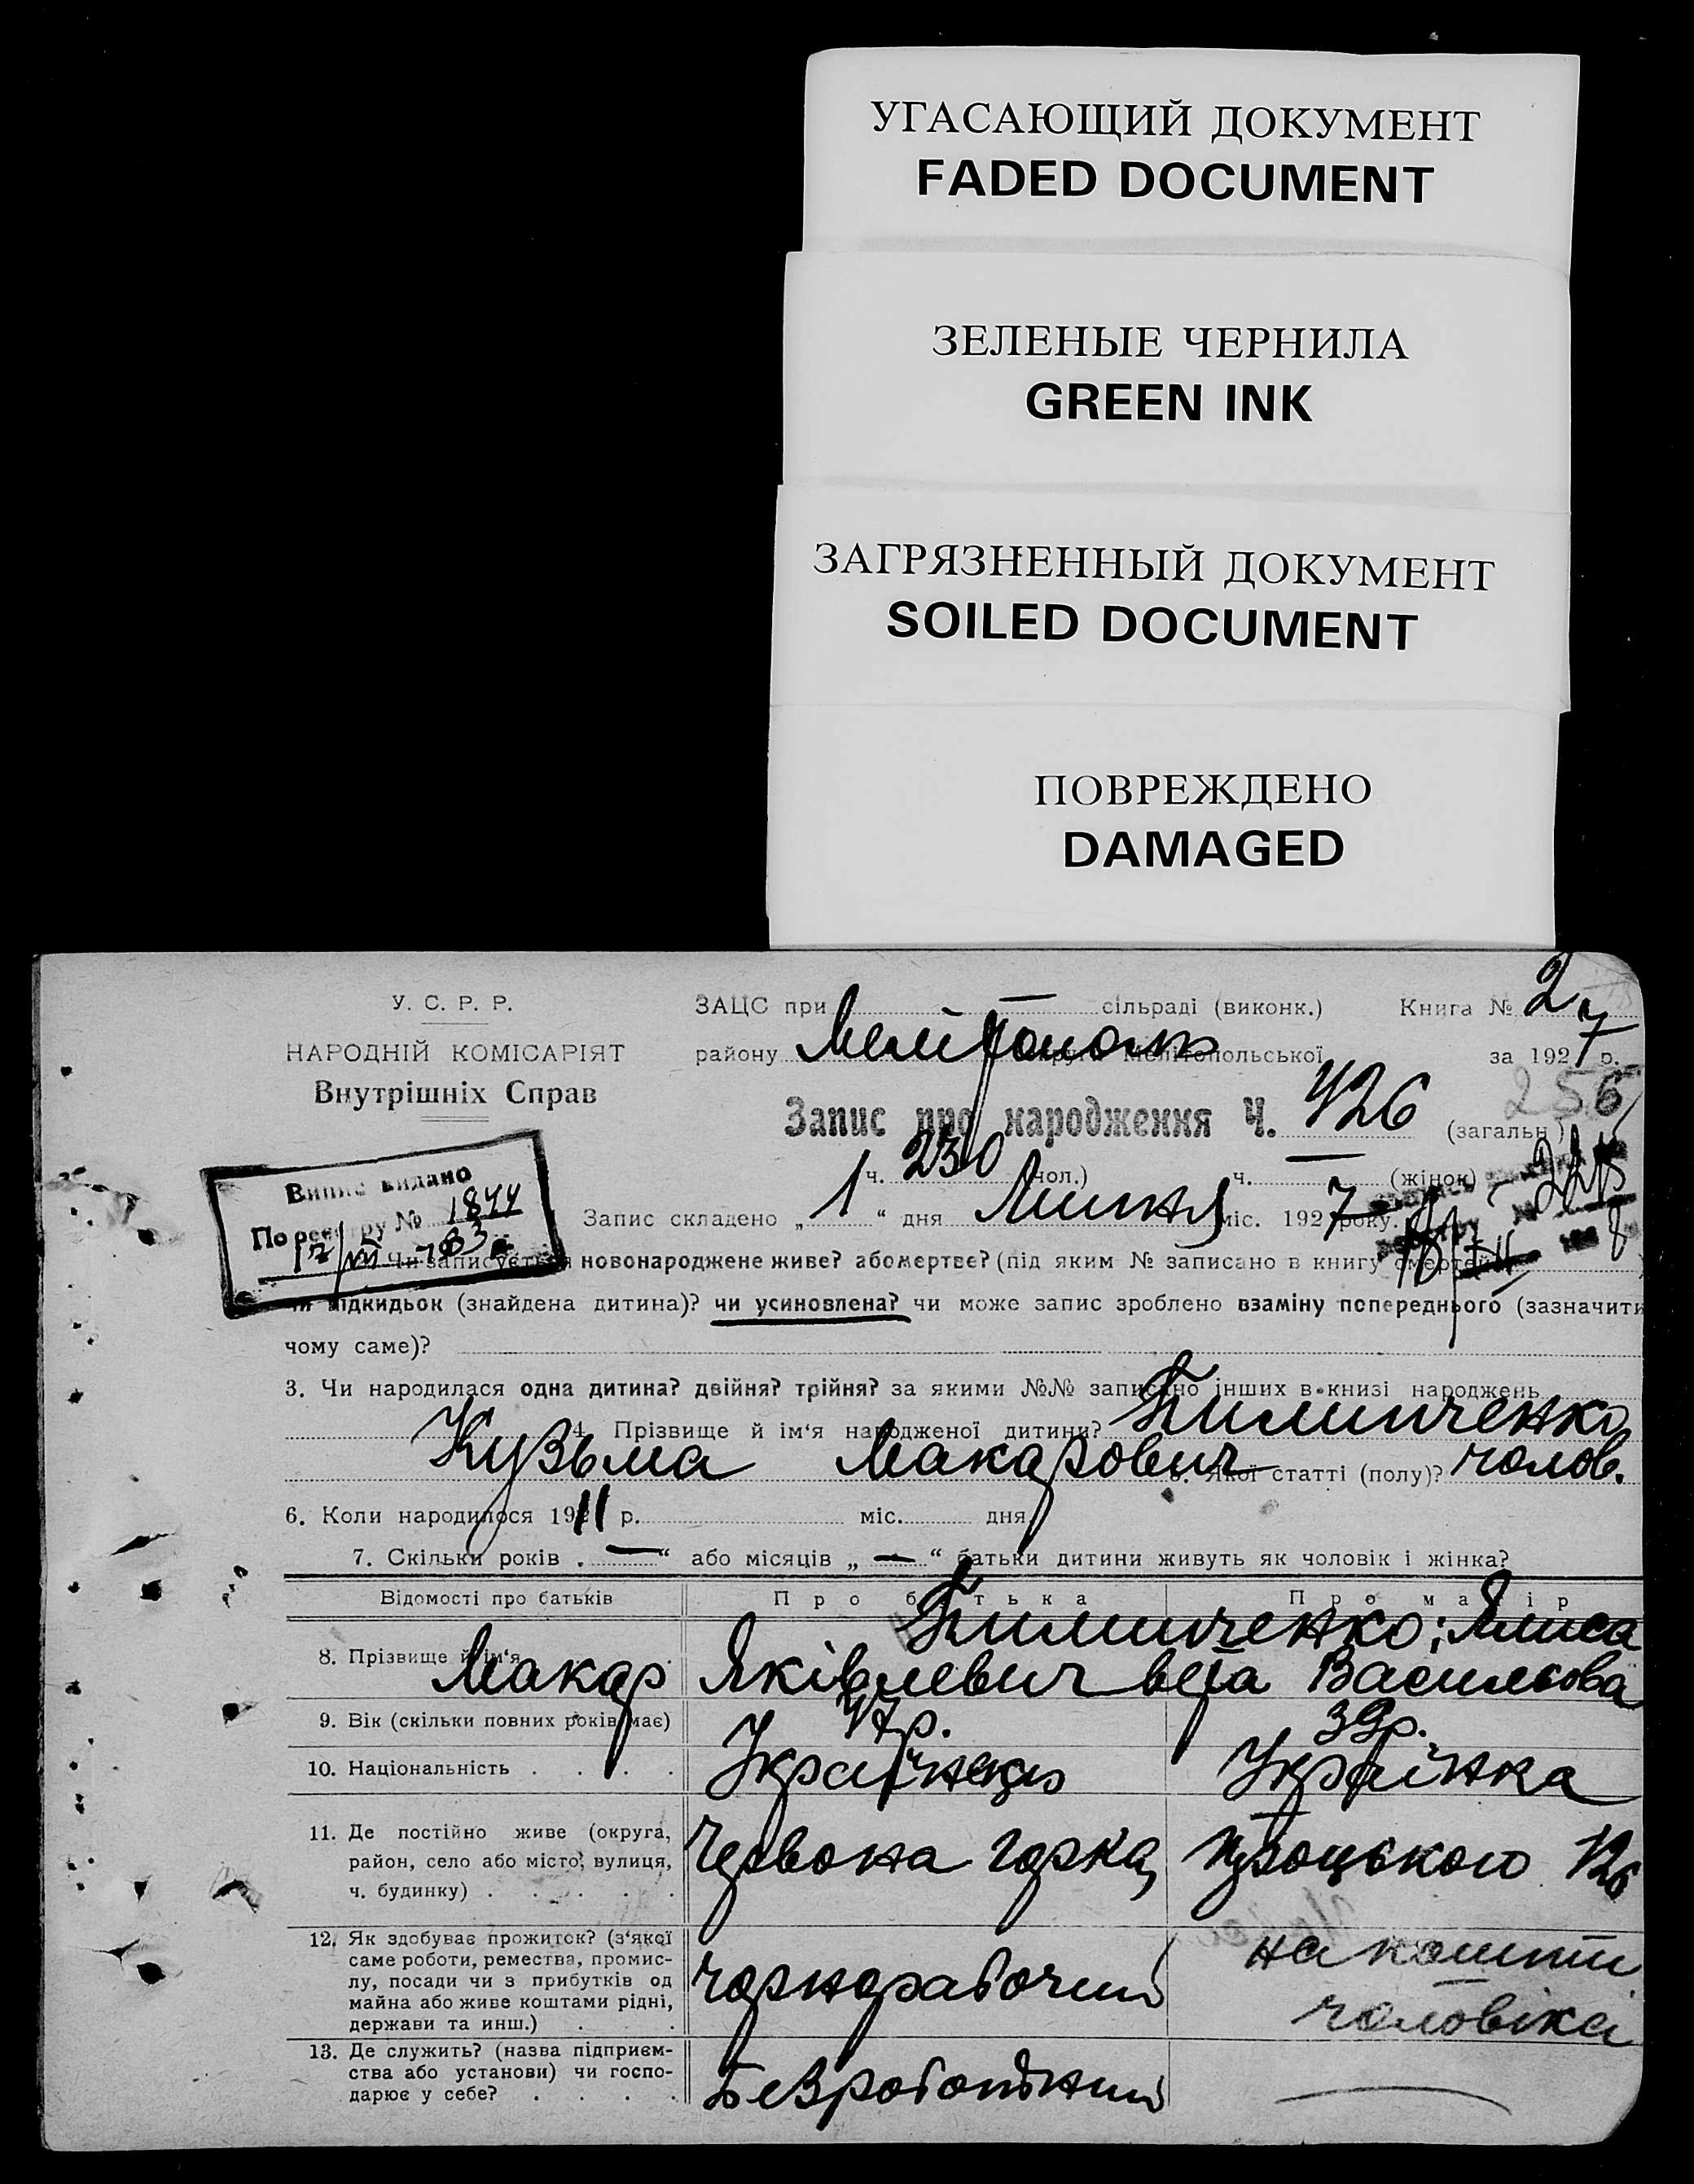 УГАСАЮЩИЙ ДОКУМЕНТ
FADED DOCUMENT
ЗЕЛЕНЫЕ ЧЕРНИЛА
GREEN INK
ЗАГРЯЗНЕННЫЙ ДОКУМЕНТ
SOILED DOCUMENT
ПОВРЕЖДЕНО
DAMAGED
У. С. Р. Р.
НАРОДНІЙ КОМІСАРІЯТ
Внутрішніх Справ
ЗАЦС при — сільраді (виконк.) Книга № 2
району Мелітополь округи Мелітопольської за 1927 р.
256
Запис про народження Ч. 426 (загальн)
ч. 230 (чол.) ч. — (жінок)
Випис видано
По реєстру № 1844
Запис складено „ 1 “ дня Липня міс. 1927 року.
Чи записується новонароджене живе? або мертве? (під яким № записано в книгу смертей
чи підкидьок (знайдена дитина)? чи усиновлена? чи може запис зроблено взаміну попереднього (зазначити
чому саме)?
3. Чи народилася одна дитина? двійня? трійня? за якими №№ записано інших в книзі народжень
4. Прізвище й ім‘я народженої дитини? Биличенко
Кузьма Макарович 5. Якої статті (полу)? чолов.
6. Коли народилося 1911 р. міс. дня
7. Скільки років „ — “ або місяців „ — “ батьки дитини живуть як чоловік і жінка?
Відомості про батьків Про батька Про матір
8. Прізвище й ім‘я Биличенко;
Макар Яківлевич Васильєва
9. Вік (скільки повних років має) 47р. 39р.
10. Національність Українець Українка
11. Де постійно живе (округа,
район, село або місто, вулиця,
ч. будинку) Червона горка, Троцького 126
12. Як здобуває прожиток? (з‘якої
саме роботи, ремества, промис-
лу, посади чи з прибутків од
майна або живе коштами рідні,
держави та инш.) чорнорабочий на кошти
чоловіка
13. Де служить? (назва підприєм-
ства або установи) чи госпо-
дарює у себе? Безробітний